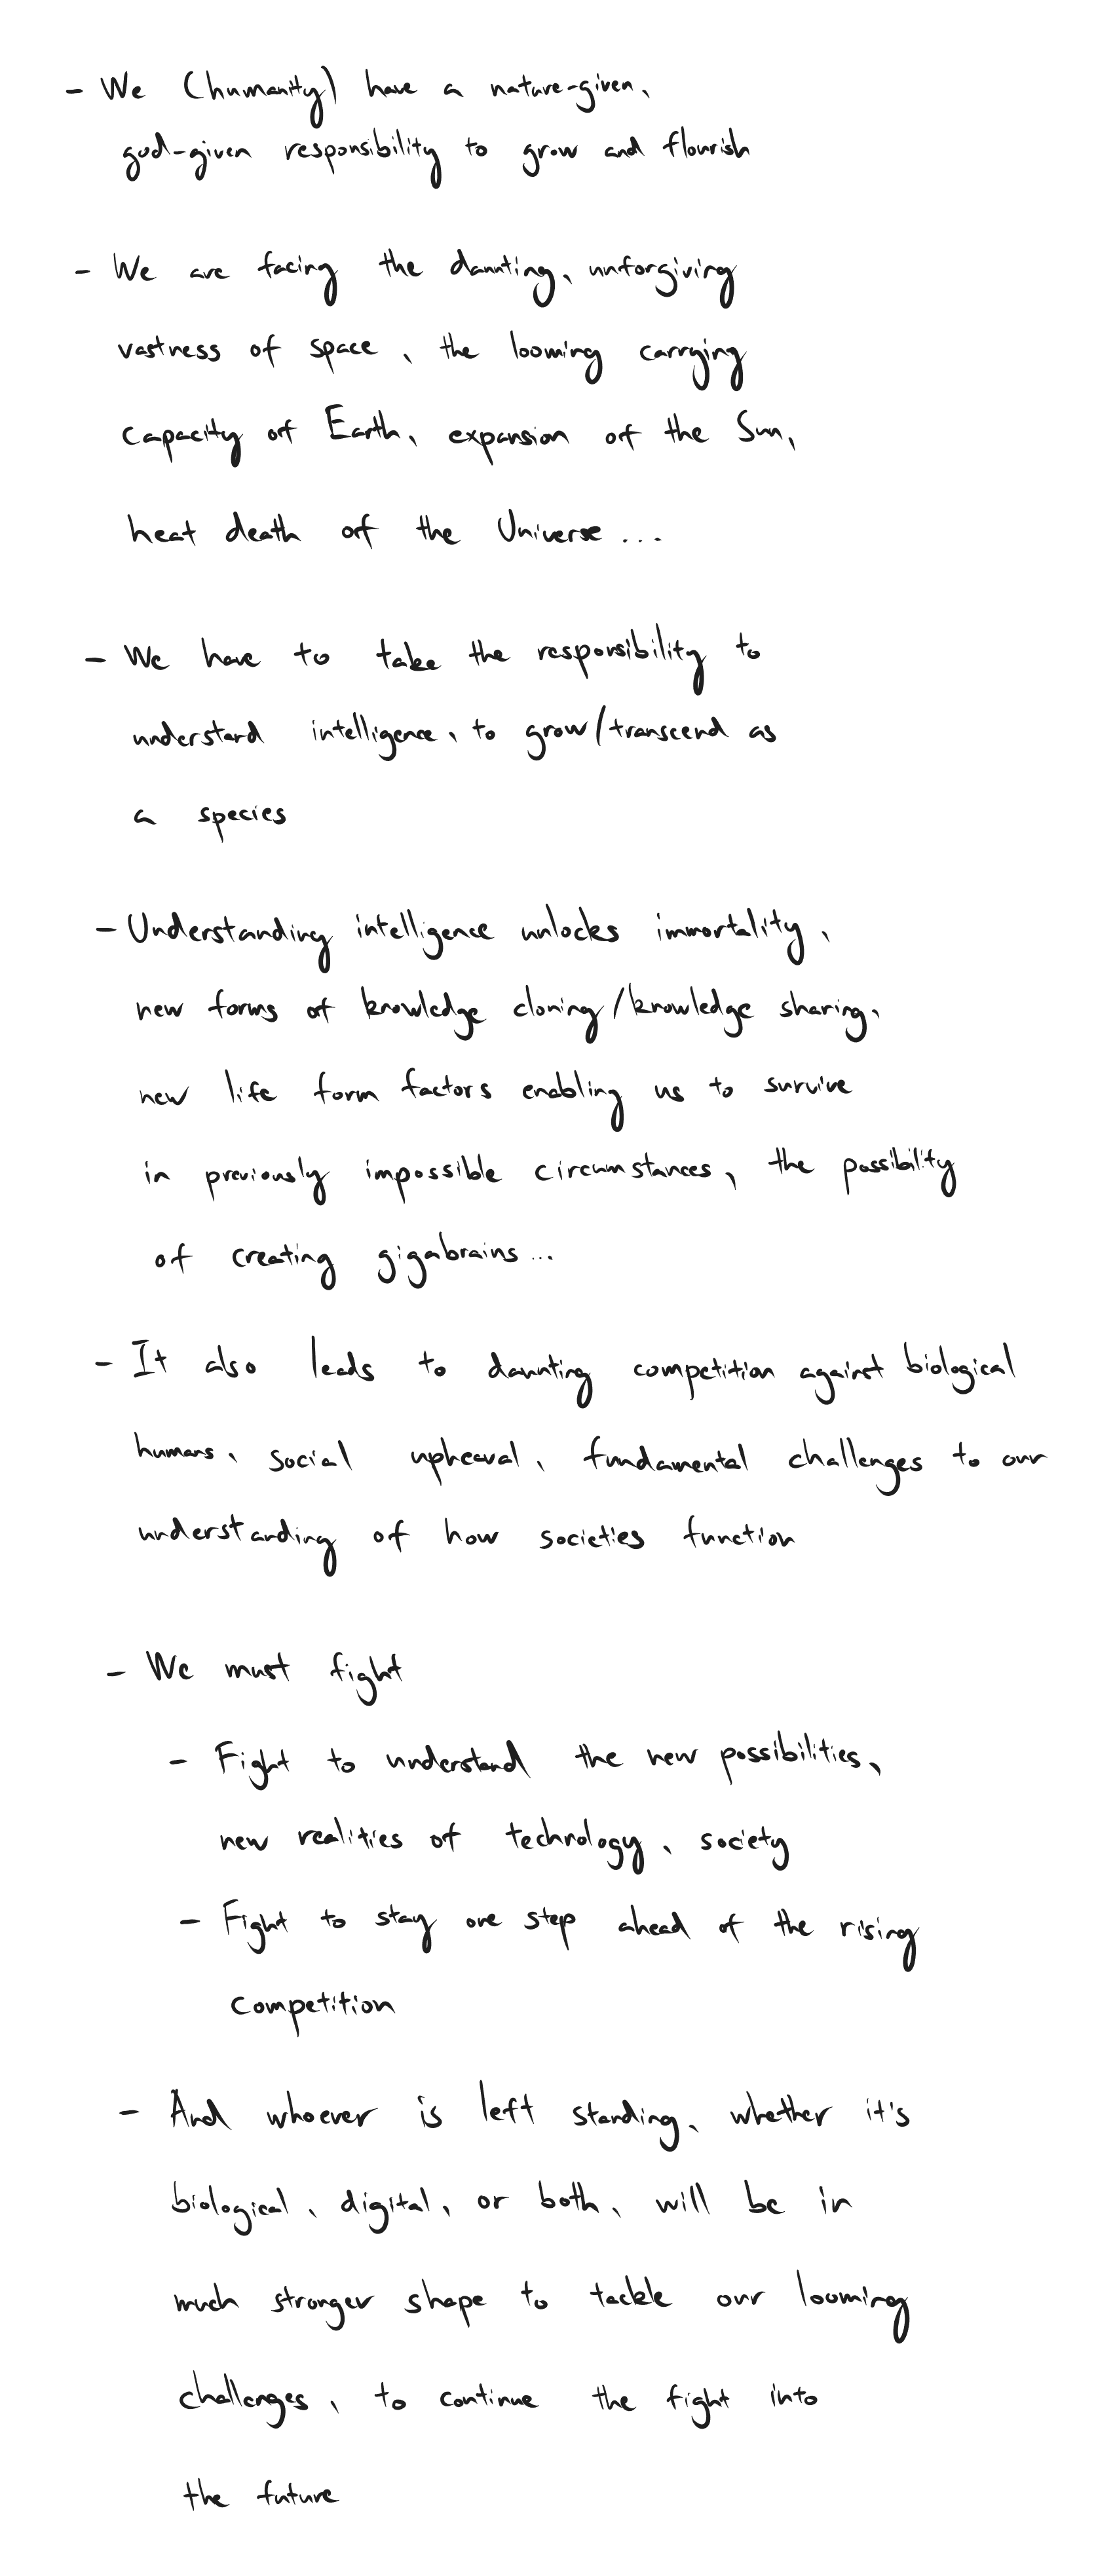 - We (humanity) have a nature-given,
god-given responsibility to grow and flourish
- We are facing the daunting, unforgiving
vastness of space, the looming carrying
capacity of Earth, expansion of the Sun,
heat death of the Universe...
- We have to take the responsibility to
understand intelligence, to grow/transcend as
a species
- Understanding intelligence unlocks immortality,
new forms of knowledge cloning/knowledge sharing,
new life form factors enabling us to survive
in previously impossible circumstances, the possibility
of creating gigabrains...
- It also leads to daunting competition against biological
humans, social upheaval, fundamental challenges to our
understanding of how societies function
- We must fight
- Fight to understand the new possibilities,
new realities of technology, society
- Fight to stay one step ahead of the rising
competition
- And whoever is left standing, whether it's
biological, digital, or both, will be in
much stronger shape to tackle our looming
challenges, to continue the fight into
the future